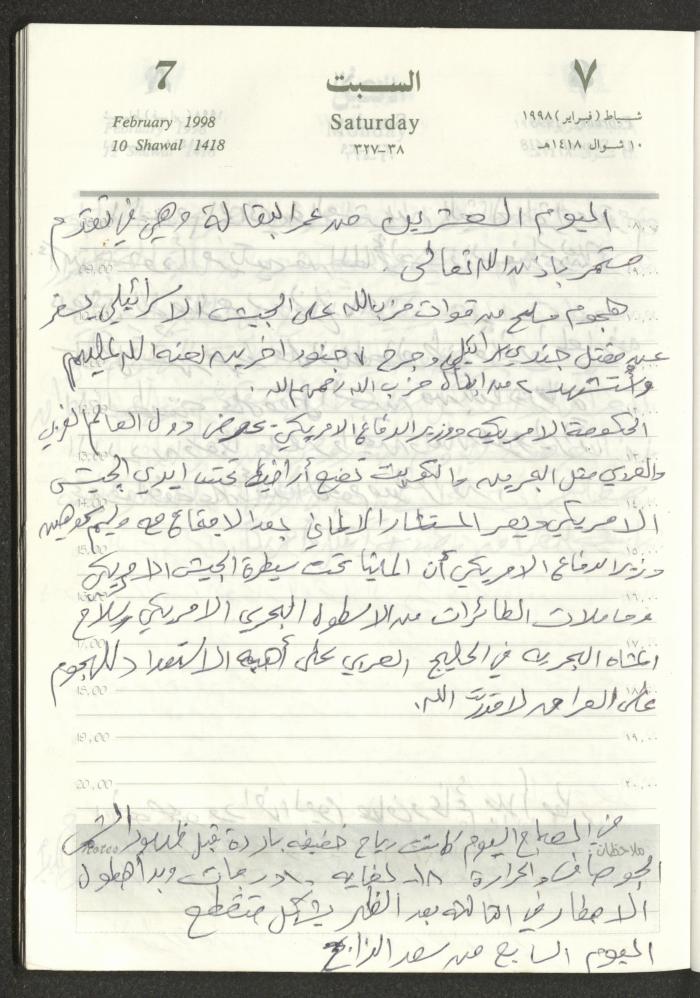 7
السبت
٧
February 1998
Saturday
شباط (فبراير) ١٩٩٨
10 Shawal 1418
٣٢٧-٣٨
١٠ شوال ١٤١٨هـ
اليوم العشرين من عمر البقالة وهي في تقدم
مستمر باذن الله تعالى.
هجوم مسلح من قوات حزب الله على الجيش الاسرائيلي يسفر
عن مقتل جندي اسرائيلي وجرح ٧ جنود اخرين لعنة الله عليهم
واستشهد ٢ من ابطال حزب الله رحمهم الله.
الحكومة الامريكية ووزير الدفاع الامريكي دول العالم الغربي
والعربي مثل البحرين والكويت تضع أراضيها تحت ايدي الجيش
الامريكي المستشار الالماني بعد الاجتماع مع وليم كوهين
وزير الدفاع الامريكي أن المانيا تحت سيطرة الجيش الامريكي
وحاملات الطائرات من الاسطول البحري الامريكي وسلاح
المشاه البحرية في الخليج العربي على أهبة الاستعداد للهجوم
على العراق لا قدر الله.
18,00
19,00
١٩,٠٠
20,00
٢٠,٠٠
Notes
ملاحظات
في الصباح اليوم كانت رياح خفيفه باردة قبل ظهور الشمس
الجو صاف والحرارة ١٨ لغاية ٢٠ درجات وبدأ هطول
الامطار في بعد الظهر بشكل متقطع
اليوم السابع من سعد الذابح